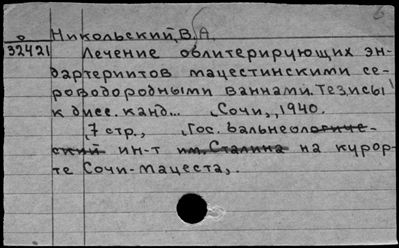 Никольский, В.А.
32421 Лечение облитерирующих эн-
дартериитов мацестинскими се-
роводородными ваннами. Тезисы
к дисс. канд... Сочи, 1940.
7 стр., Гос. бальнеологиче-
ский ин-т им. Сталина на курор-
те Сочи-Мацеста,.